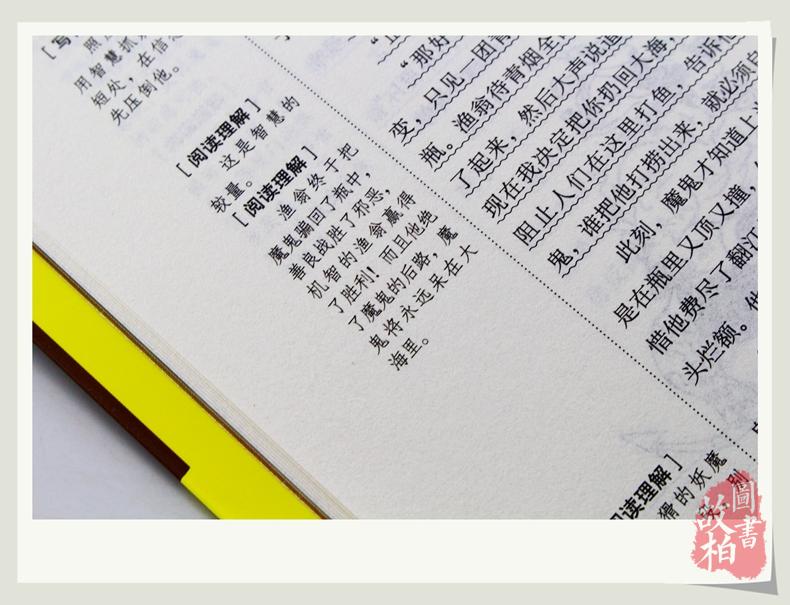 [写
照
用智慧抓
短处，在信
先压倒他。
[阅读理解]
这是智慧的
较量。
[阅读理解]
渔翁终于把
魔鬼骗回了瓶中，
善良战胜了邪恶，
机智的渔翁赢得
了胜利！而且他绝
了魔鬼的后路，魔
鬼将永远呆在大
海里。
阅读理解]
猾的妖魔
“那好
变，只见一团青
瓶。渔翁待青烟全
了起来，然后大声说道
现在我决定把你扔回大海，
阻止人们在这里打鱼，告诉
鬼，谁把他打捞出来，就必须
此刻，魔鬼才知道上
是在瓶里又顶又撞，
惜他费尽了翻江
头烂额。他
别
故柏
圖書